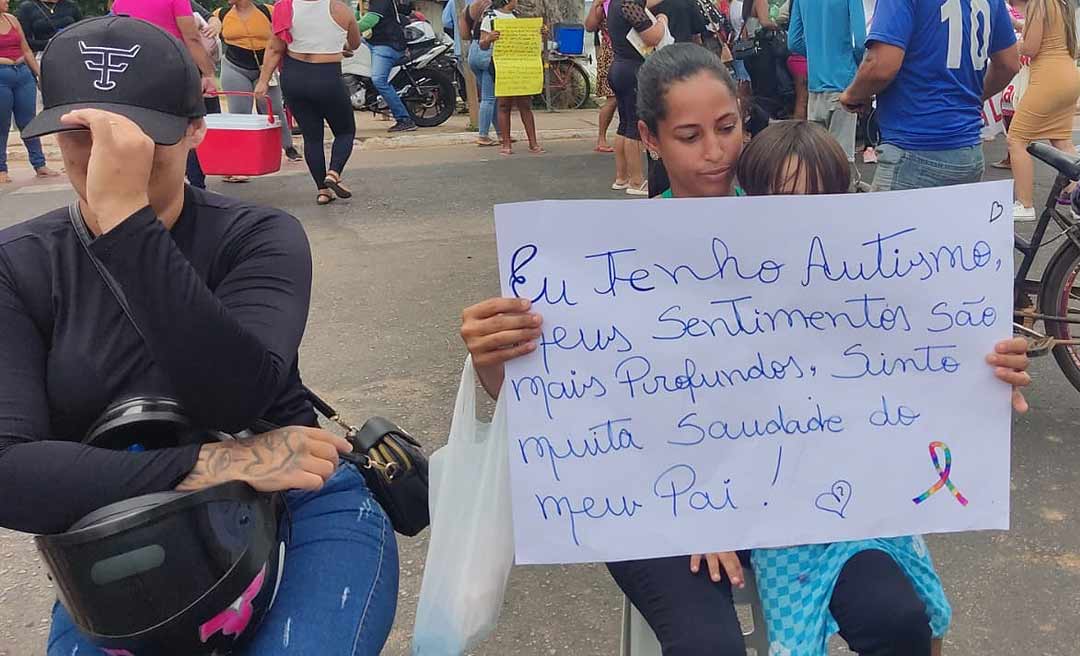 Eu Tenho Autismo,
meus Sentimentos são
mais Profundos, Sinto
muita Saudade do
meu Pai!
10